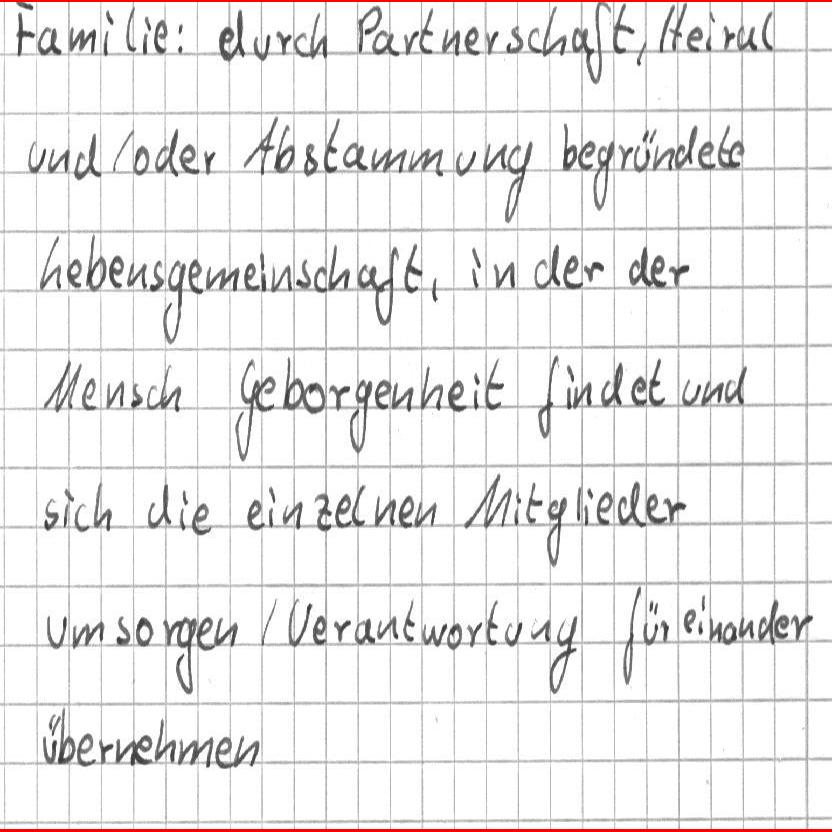 Familie: durch Partnerschaft, Heirat
und/oder Abstammung begründete
Lebensgemeinschaft, in der der
Mensch Geborgenheit findet und
sich die einzelnen Mitglieder
umsorgen / Verantwortung füreinander
übernehmen